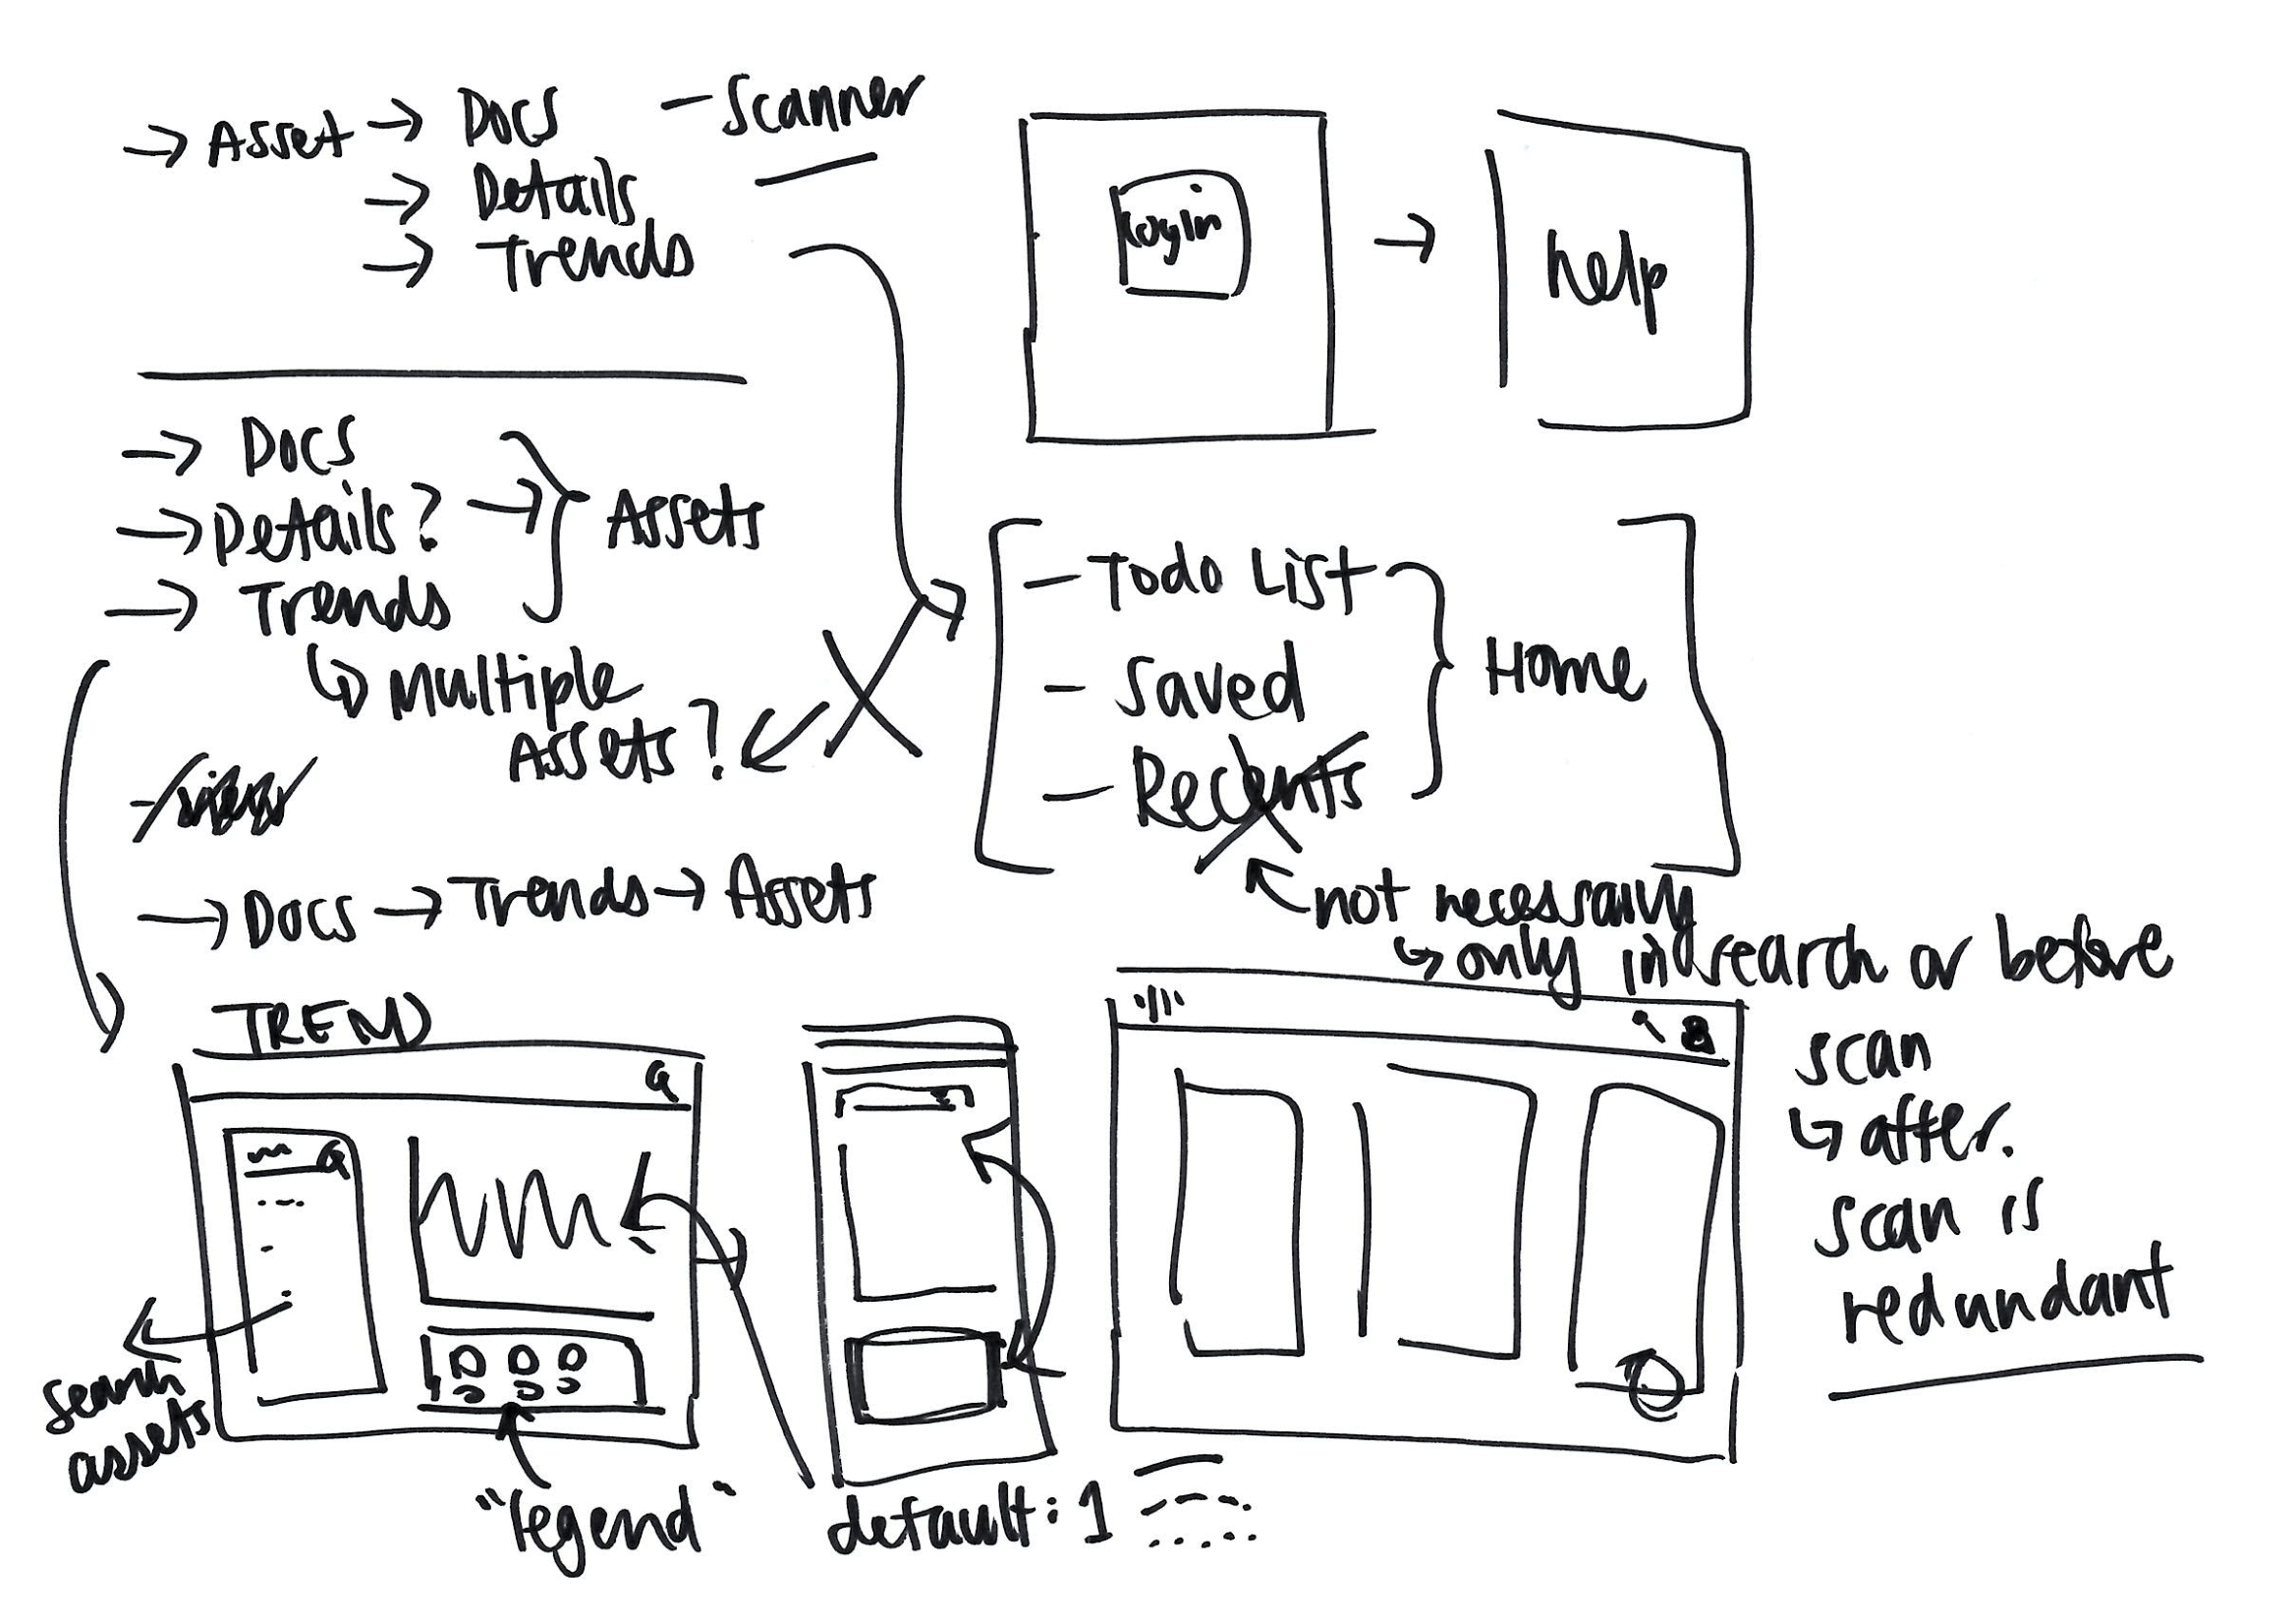 → Asset → Docs - Scanner
→ Details
→ Trends
login → help
→ Docs
→ Details? → Assets
→ Trends
↳ Multiple
Assets?
- Todo List
- Saved
- Recents
Home
not necessary
↳ only in search or before
scan
↳ after.
scan is
redundant
→ Docs → Trends → Assets
TREND
search
assets
"legend"
default: 1